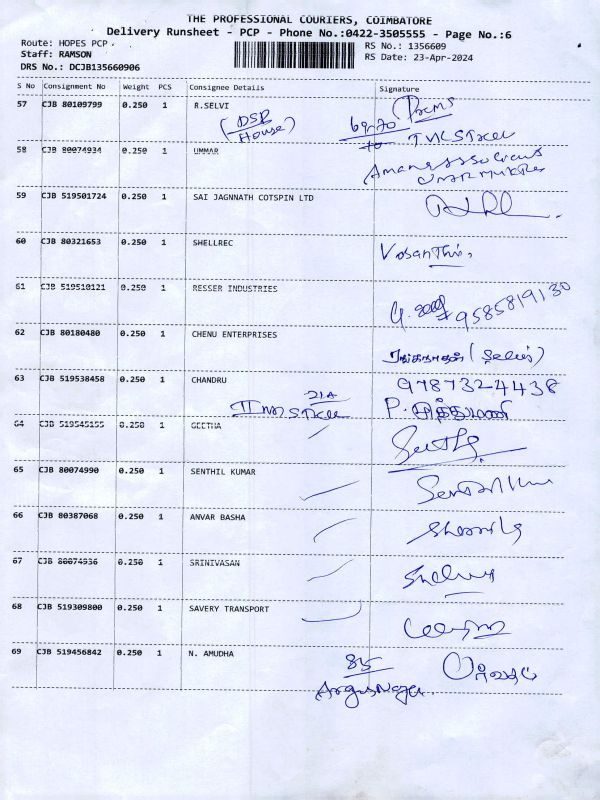 THE PROFESSIONAL COURIERS, COIMBATORE
Delivery Runsheet - PCP - Phone No.:0422-3505555 - Page No.:6
Route: HOPES PCP
RS No.: 1356609
Staff: RAMSON
RS Date: 23-Apr-2024
DRS No.: DCJB135660906
S No Consignment No Weight PCS Consignee Details Signature
57 CJB 80109799 0.250 1 R.SELVI
(DSB House)
69-70
58 CJB 80074934 0.250 1 UMMAR
59 CJB 519501724 0.250 1 SAI JAGNNATH COTSPIN LTD
60 CJB 80321653 0.250 1 SHELLREC
Vasanthi.
61 CJB 519510121 0.250 1 RESSER INDUSTRIES
9585819130
62 CJB 80180480 0.250 1 CHENU ENTERPRISES
63 CJB 519538458 0.250 1 CHANDRU
9787324438
21A
64 CJB 519545155 0.250 1 GEETHA
Geetha
65 CJB 80074990 0.250 1 SENTHIL KUMAR
66 CJB 80387068 0.250 1 ANVAR BASHA
67 CJB 80074936 0.250 1 SRINIVASAN
68 CJB 519309800 0.250 1 SAVERY TRANSPORT
69 CJB 519456842 0.250 1 N. AMUDHA